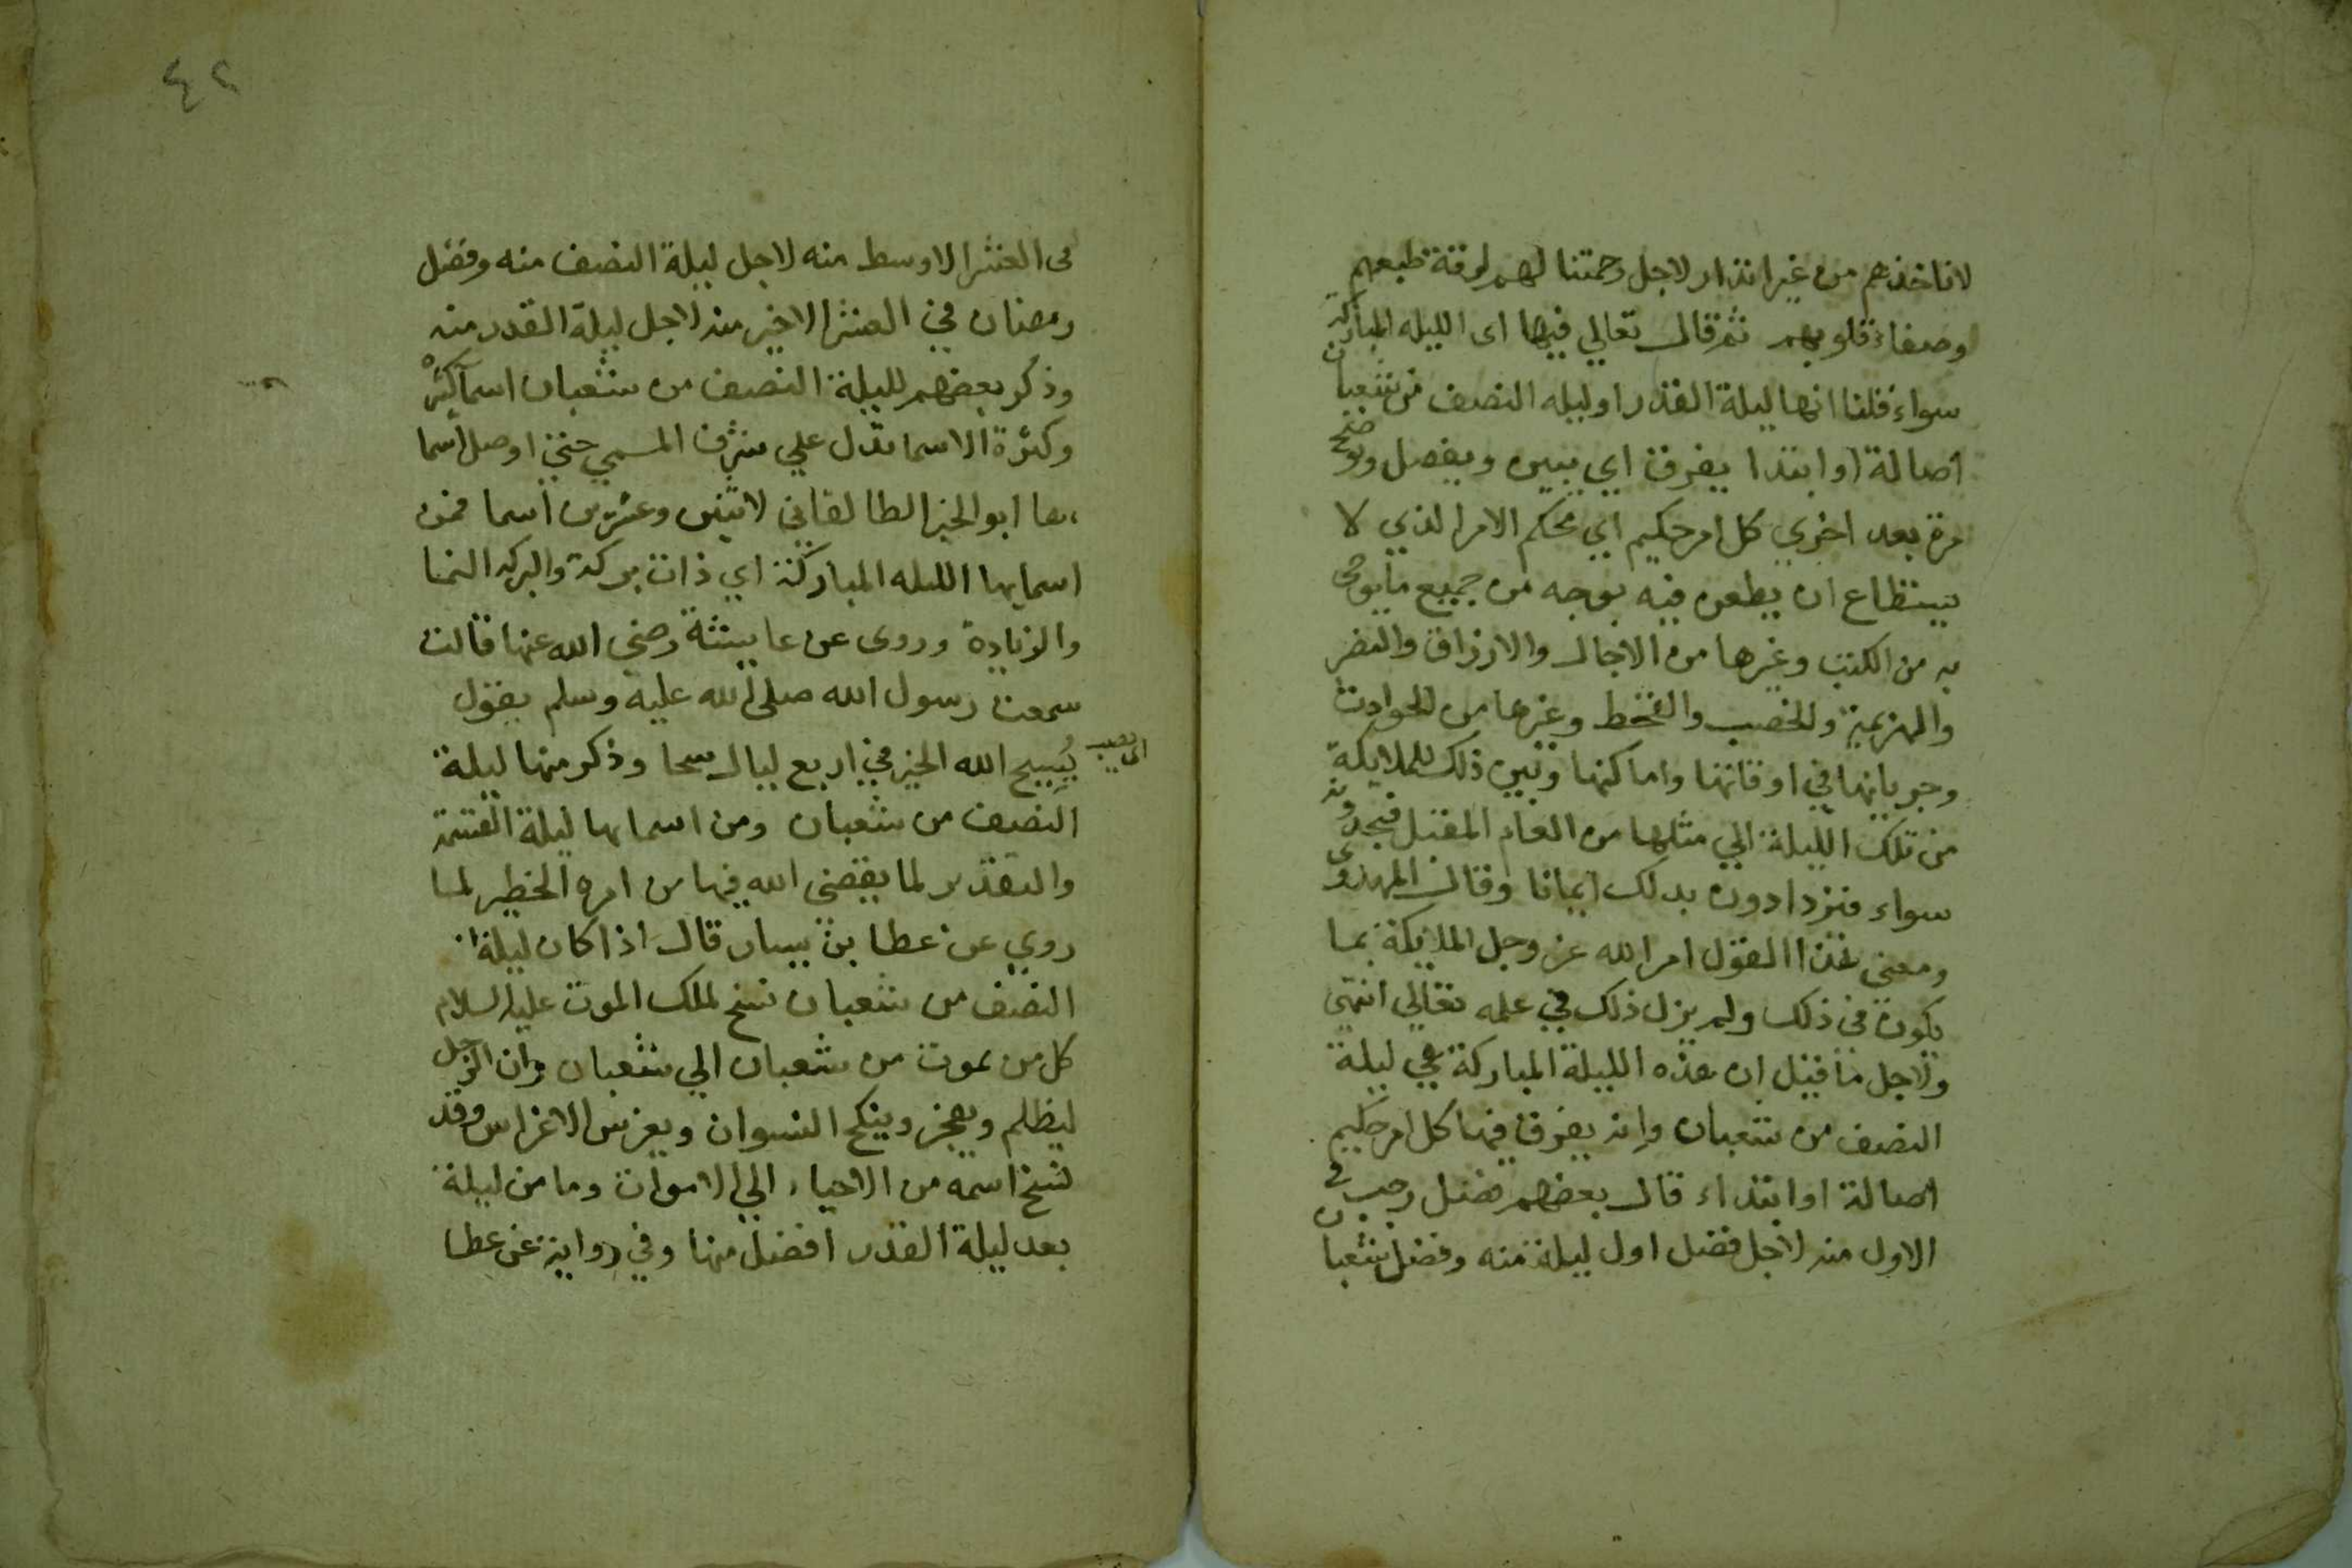 لاناخذهم من غير انذار لاجل رحمتنا لهم لرقة طبعهم
وصفاء قلوبهم ثم قال تعالي فيها اى الليله المباركة
سواء قلنا انها ليلة القدر او ليله النصف من شعبان
اصالة او ابتدا يفرق اي يبين ويفصل ويوضح
مرة بعد اخري كل امر حكيم اي محكم الامر الذي لا
يستطاع ان يطعن فيه بوجه من جميع ما يوحى
به من الكتب وغيرها من الاجال والارزاق والنصر
والهزيمة والخصب والقحط وغيرها من الحوادث
وجريانها في اوقاتها واماكنها ونبين ذلك للملايكة
من تلك الليلة الي مثلها من العام المقبل فيجدونه
سواء فيزدادون بذلك ايمانا وقال المهدوى
ومعنى هذا القول امر الله عز وجل الملايكة بما
يكون في ذلك ولم يزل ذلك في علمه تعالي انتهى
ولاجل ما قيل ان هذه الليلة المباركة هي ليلة
النصف من شعبان وانه يفرق فيها كل امر حكيم
اصالة او ابتداء قال بعضهم فضل رجب في
الاول منه لاجل فضل اول ليلة منه وفضل شعبان
٤٢
فى العشر الاوسط منه لاجل ليلة النصف منه وفضل
رمضان في العشر الاخير منه لاجل ليلة القدر منه
وذكر بعضهم لليلة النصف من شعبان اسما كثيرة
وكثرة الاسما تدل علي شرف المسمي حتي اوصل اسما
ءها ابو الخير الطالقاني لاثنين وعشرين اسما فمن
اسمايها الليله المباركة اي ذات بركة والبركه النما
والزيادة وروى عن عايشة رضي الله عنها قالت
سمعت رسول الله صلى الله عليه وسلم يقول
يُسِيح الله الخير في اربع ليال سحا وذكر منها ليلة
النصف من شعبان ومن اسمايها ليلة القسمة
والتقدير لما يقضى الله فيها من امره الخطير لما
روي عن عطا بن يسار قال اذا كان ليلة
النصف من شعبان نسخ لملك الموت عليه السلام
كل من يموت من شعبان الي شعبان وان الرجل
ليظلم ويفجر وينكح النسوان ويغرس الاغراس وقد
نسخ اسمه من الاحياء الي الاموات وما من ليلة
بعد ليلة القدر افضل منها وفي رواية عن عطا